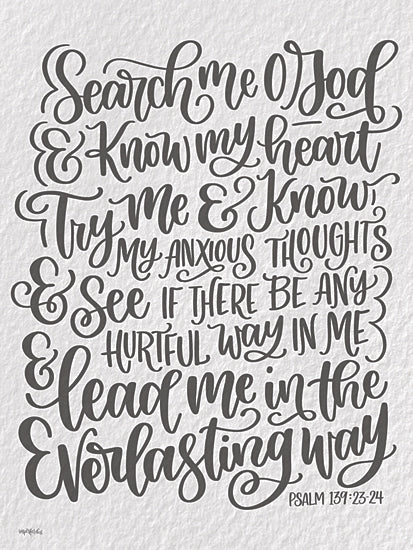 Search me O God
& Know my heart
Try Me & Know
MY ANXIOUS THOUGHTS
& See IF THERE BE ANY
HURTFUL WAY IN ME
& lead me in the
Everlasting way
PSALM 139:23-24